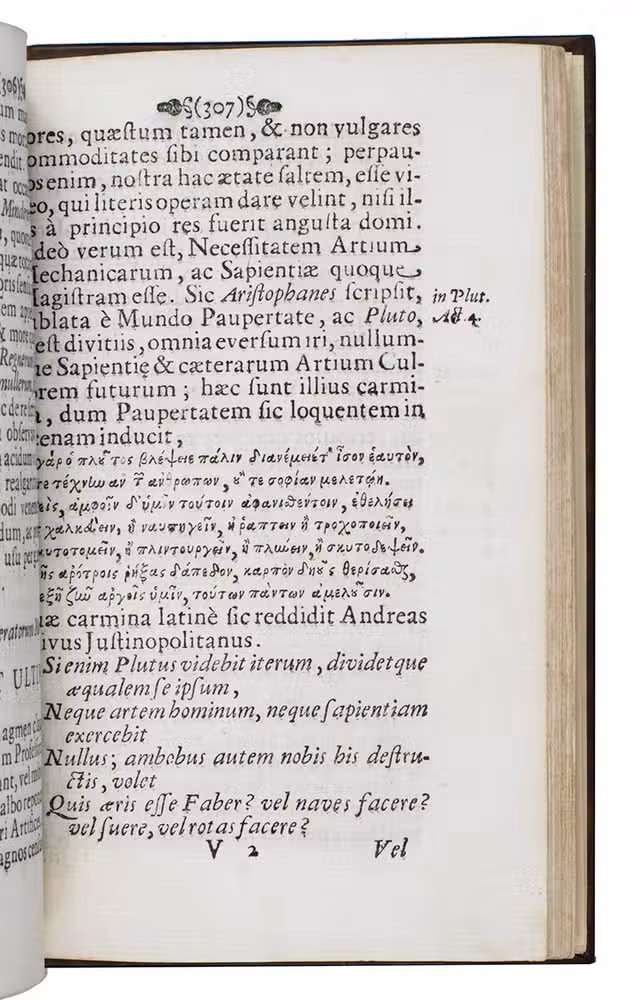 (307)
ores, quæstum tamen, & non vulgares
ommoditates sibi comparant ; perpau-
enim, nostra hac ætate saltem, esse vi-
eo, qui literis operam dare velint, nisi il-
s à principio res fuerit angusta domi.
deò verum est, Necessitatem Artium
echanicarum, ac Sapientiæ quoque
agistram esse. Sic Aristophanes scripsit,
in Plut.
Act. 4.
blata è Mundo Paupertate, ac Pluto,
est divitiis, omnia eversum iri, nullum-
e Sapientię & cæterarum Artium Cul-
rem futurum ; hæc sunt illius carmi-
, dum Paupertatem sic loquentem in
enam inducit,
γάρ ὁ πλοῦτος βλέψειε πάλιν διανέμειέτ' ἶσον ἑαυτὸν,
τε τέχνἰω ἂν τ ἀνθρωπων, οὔτε σοφίαν μελετῴη.
εὶς, ἀμφοῖν δ' ὑμῖν τούτοιν ἀφανισθέντοιν, ἐθελήσει
χαλκεύειν, ἢ ναυπηγεῖν, ἢ ῥαπτειν ἢ τροχοποιεῖν,
κυτοτομεῖν, ἢ πλιντουργεῖν, ἢ πλιώειν, ἢ σκυτοδεψεῖν.
ῆς ἀρότροις ῥήξας δάπεδον, καρπὸν δηοῦς θερίσαθς,
εξῆ ζιῶ ἀργοῖς ὑμῖν, τούτων πάντων ἀμελοῦσιν.
uæ carmina latinè sic reddidit Andreas
ivus Justinopolitanus.
Si enim Plutus videbit iterum, dividetque
æqualem se ipsum,
Neque artem hominum, neque sapientiam
exercebit
Nullus; ambobus autem nobis his destru-
ctis, volet
Quis æris esse Faber? vel naves facere?
vel suere, vel rotas facere?
V 2 Vel